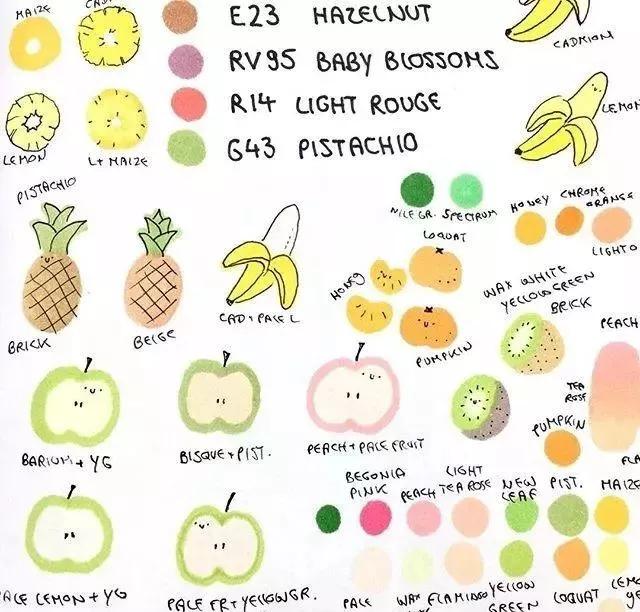 MAIZE
E23 HAZELNUT
CADMIUM
RV95 BABY BLOSSOMS
R14 LIGHT ROUGE
LEMON
LEMON
LT MAIZE
G43 PISTACHIO
PISTACHIO
NILE GR. SPECTRUM
HONEY
CHROME
ORANGE
LIGHT O
LOQUAT
HONEY
WAX WHITE
YELLOW GREEN
BRICK
CAD + PALE L
BRICK
BEIGE
PUMPKIN
PEACH
TEA
ROSE
PUMPKIN
FLA
BARIUM + YG
BISQUE + PIST.
PEACH + PALE FRUIT
BEGONIA
PINK
PEACH
LIGHT
TEA ROSE
NEW
LEAF
PIST.
MAIZE
PALE LEMON + YG
PALE FR + YELLOW GR.
PALE
WAX
FLAMINGO
YELLOW
GREEN
LOQUAT
LEMO